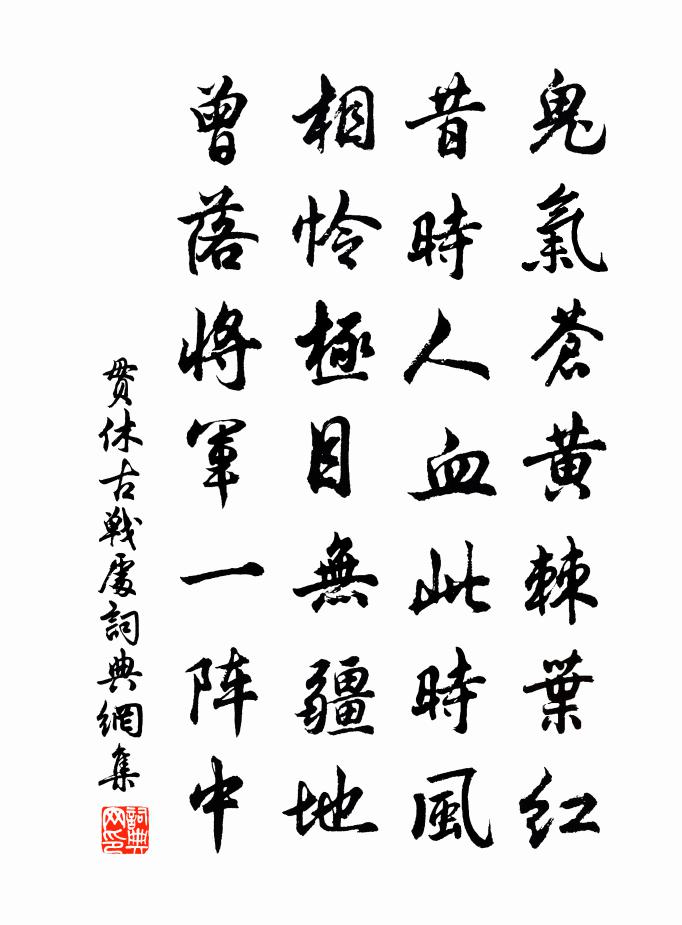 鬼氣蒼黃棘葉紅
昔時人血此時風
相憐極目無疆地
曾落將軍一阵中
贯休古戰處詞典網集
詞典网印